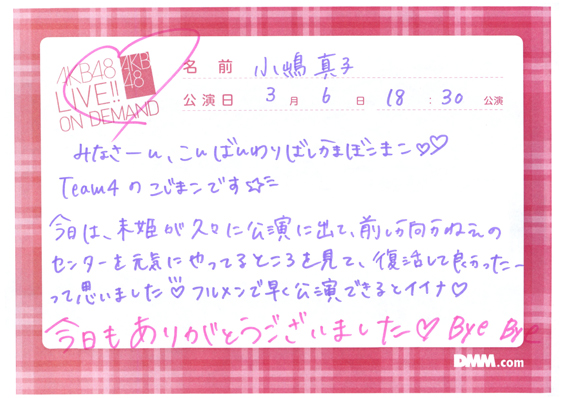 AKB48
LIVE!!
ON DEMAND
AKB
48
名前 小嶋真子
公演日 3月6日 18:30公演
みなさーん、こんばんわりばしかまぼこまこ♡♡
Team4のこじまこです☆ミ
今日は、未姫が久々に公演に出て、前しか向かねえの
センターを元気にやってるところを見て、復活して良かったー
って思いました♡フルメンで早く公演できるとイイナ♡
今日もありがとうございました♡ Bye Bye
DMM.com